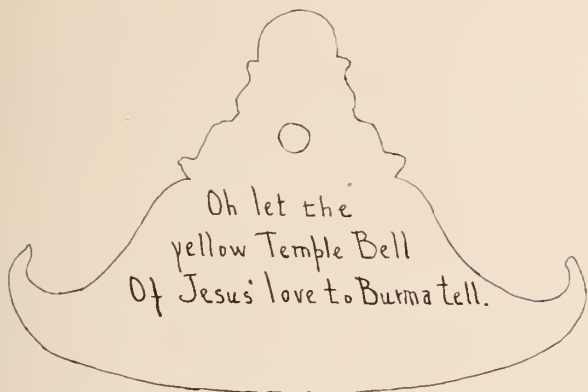 Oh let the
yellow Temple Bell
Of Jesus' love to Burma tell.